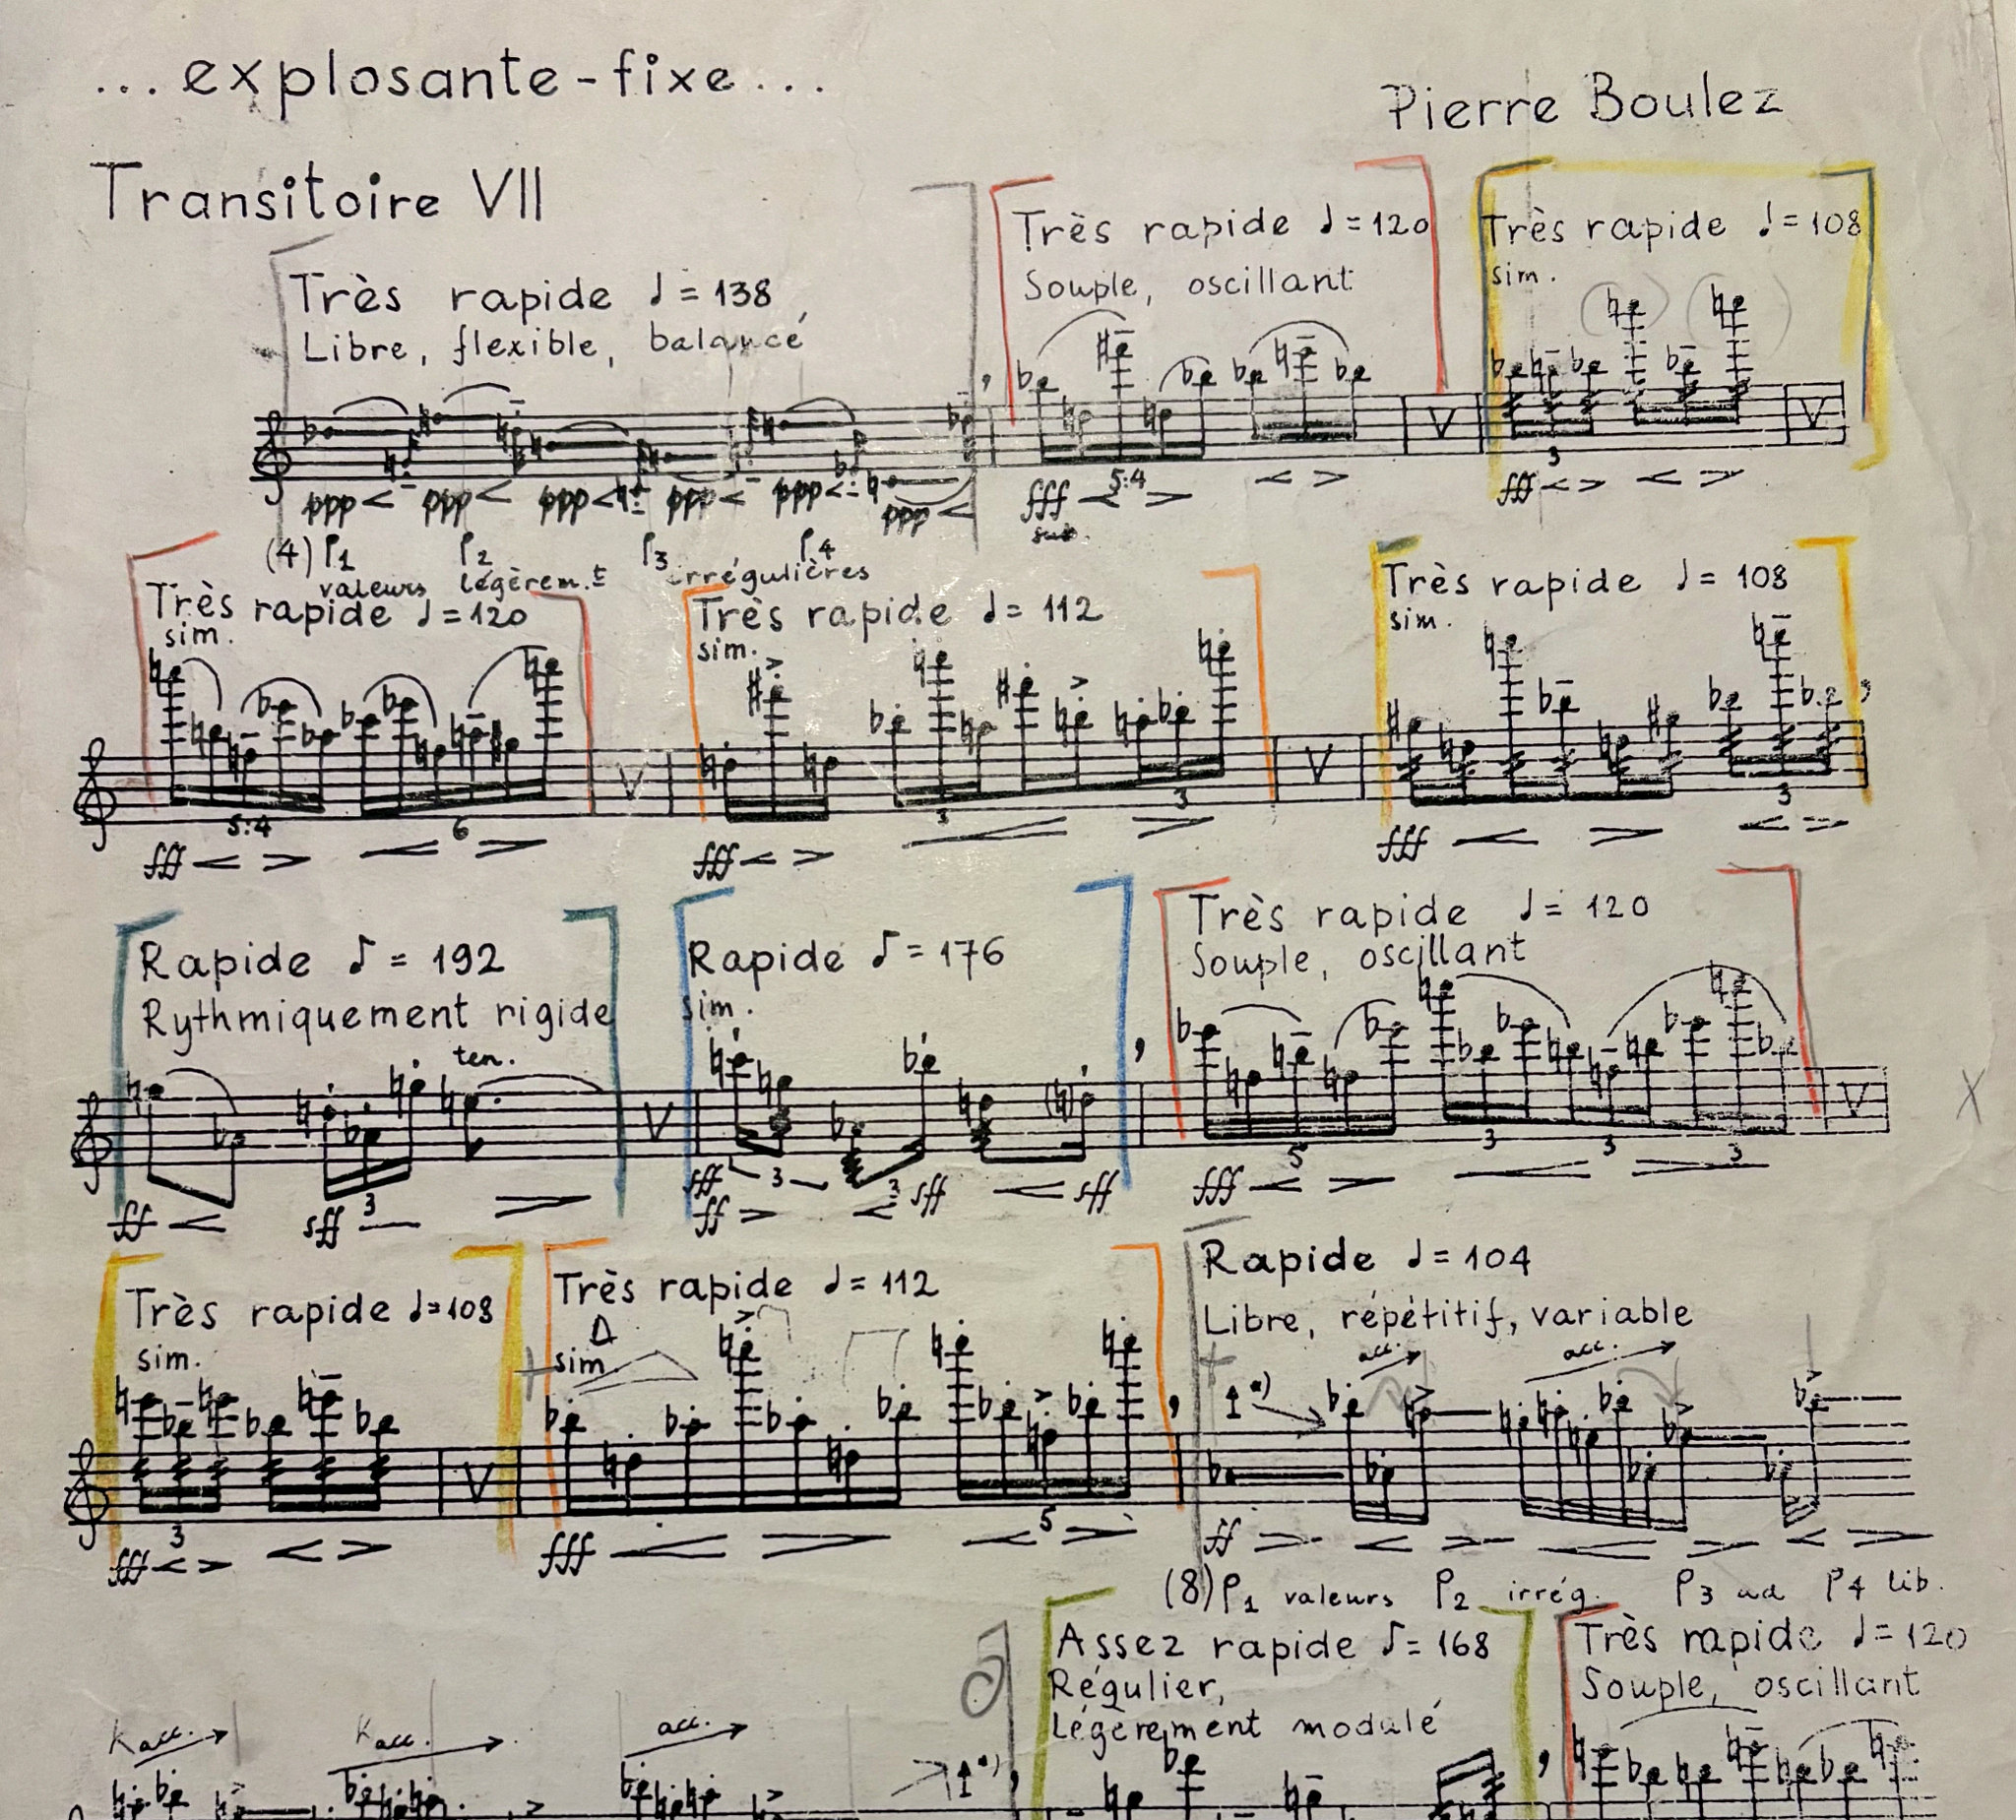 ...explosante-fixe...
Pierre Boulez
Transitoire VII
Très rapide ♩ = 138
Libre, flexible, balancé
Très rapide ♩ = 120
Souple, oscillant
Très rapide ♩ = 108
sim.
ppp ppp ppp ppp ppp ppp
5:4
fff
3
fff
(4) P1 P2 P3 P4
valeurs légèrem.t irrégulières
Très rapide ♩ = 120
sim.
Très rapide ♩ = 112
sim.
Très rapide ♩ = 108
sim.
V V
5:4 6 3 3 3
fff fff fff
Rapide ♪ = 192
Rythmiquement rigide
ten.
Rapide ♪ = 176
sim.
Très rapide ♩ = 120
Souple, oscillant
V V X
ff sff 3
sff 3 3 sff sff
ff
5 3 3 3
fff
Très rapide ♩ = 108
sim.
Très rapide ♩ = 112
sim
Rapide ♩ = 104
Libre, répétitif, variable
acc. acc.
V
3 5
fff fff ff
(8) P1 valeurs P2 irrég. P3 ad P4 lib.
Assez rapide ♪ = 168
Régulier,
légèrement modulé
Très rapide ♩ = 120
Souple, oscillant
acc. acc. acc.